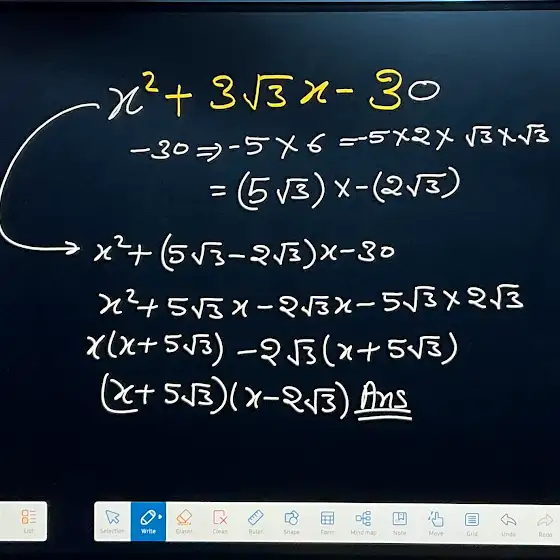 x² + 3√3 x - 30
-30 ⇒ -5 × 6 = -5 × 2 × √3 × √3
= (5√3) × -(2√3)
x² + (5√3 - 2√3) x - 30
x² + 5√3 x - 2√3 x - 5√3 × 2√3
x(x + 5√3) - 2√3 (x + 5√3)
(x + 5√3)(x - 2√3) Ans
List Selection Write Eraser Clean Ruler Shape Form Mind map Note Move Grid Undo Redo